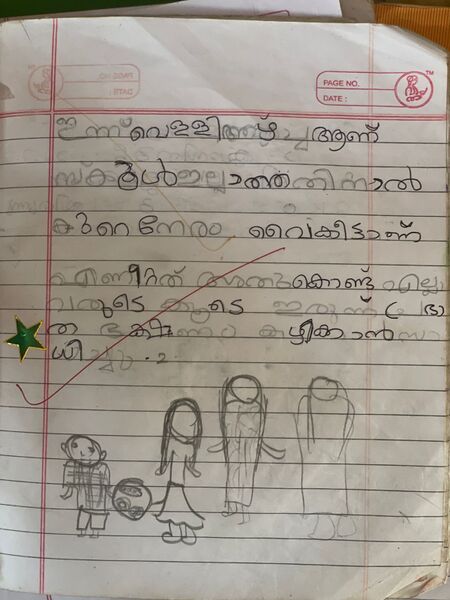 PAGE NO.
DATE :
ഇന്ന് വെള്ളിആഴ്ച ആണ്
സ്കൂൾ ഇല്ലാത്തതിനാൽ
കുറെ നേരം വൈകീട്ടാണ്
എണീറ്റത് അതുകൊണ്ട് എല്ലാ
വരുടെ കൂടെ ഇരുന്ന് പ്രാ
ത ഭക്ഷണം കഴിക്കാൻ സാ
ധിച്ചു.